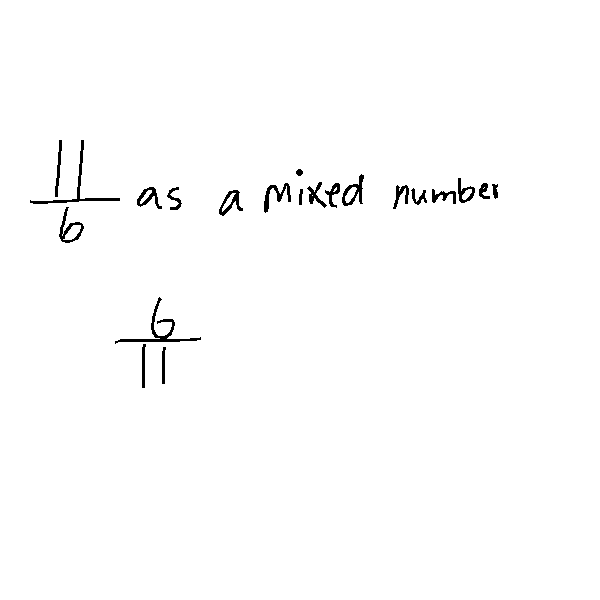 11/6 as a mixed number
6/11